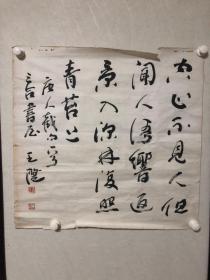 空山不見人但
聞人語響返
景入深林復照
青苔上
唐人截句
書屋 王